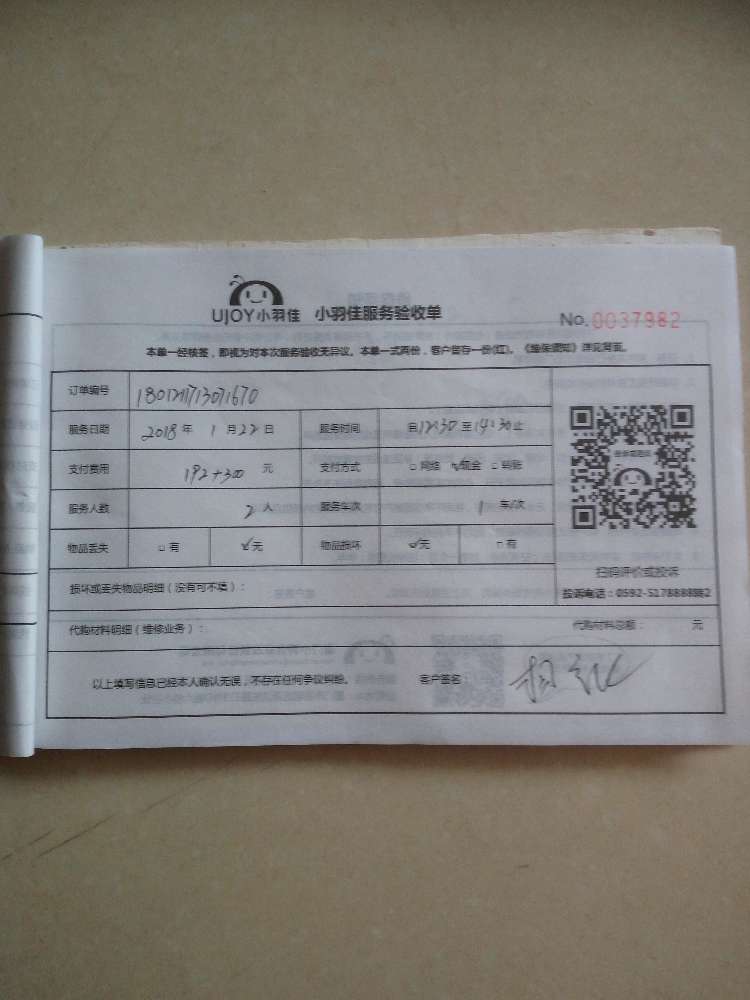 UJOY小羽佳 小羽佳服务验收单 No. 0037982
本单一经核签，即视为对本次服务验收无异议。本单一式两份，客户留存一份(红)。《维保须知》详见背面。
订单编号
服务日期 2018 年 1 月 22 日 服务时间 自12:30至14:30止
支付费用 192+300 元 支付方式 □网络 ☑现金 □转账
服务人数 2 人 服务车次 1 车/次
物品丢失 □有 ☑无 物品损坏 ☑无 □有
扫码评价或投诉
损坏或丢失物品明细（没有可不填）： 投诉电话：0592-5178888转2
代购材料明细（维修业务）： 代购材料总额： 元
以上填写信息已经本人确认无误，不存在任何争议纠纷。 客户签名：